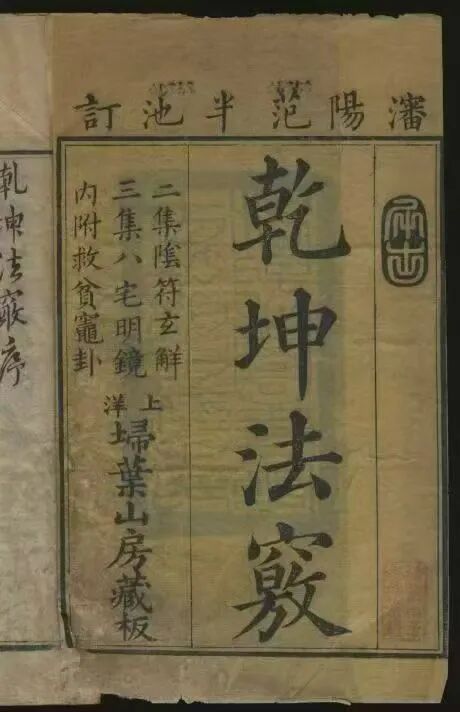 瀋陽范半池訂
乾坤法竅
二集陰符玄解
三集八宅明鏡
內附救貧竈卦
上洋
埽葉山房藏板
乹坤法竅序